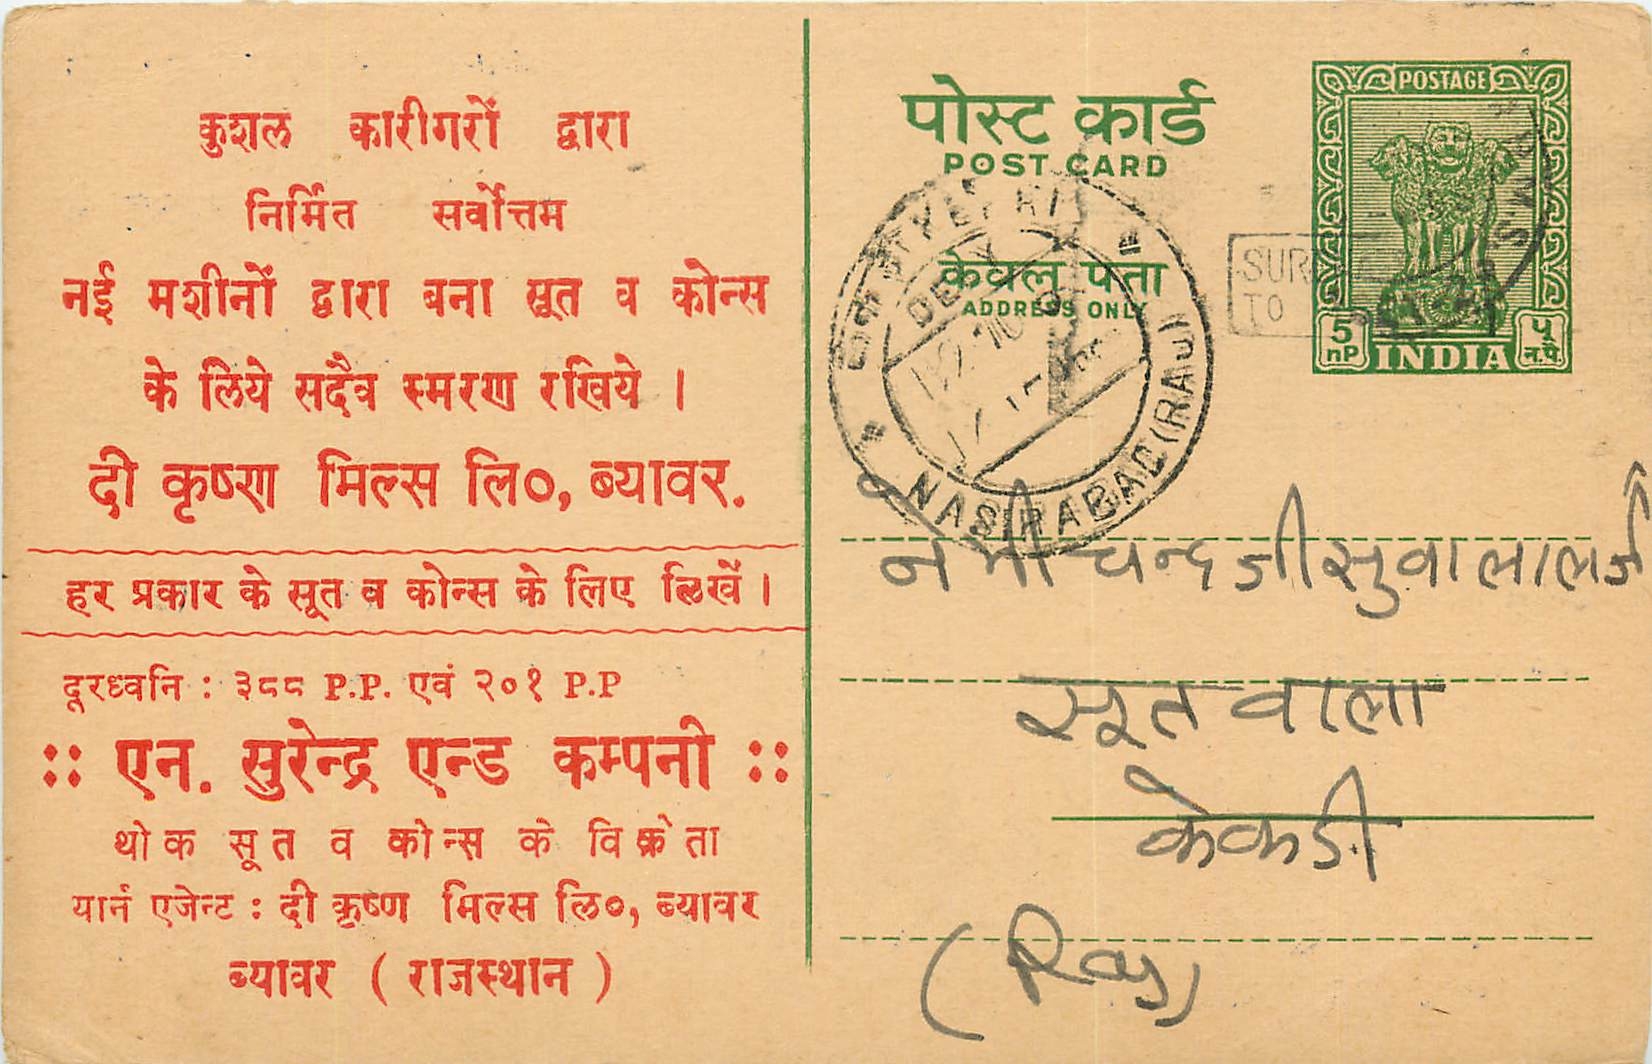 कुशल कारीगरों द्वारा
निर्मित सर्वोत्तम
नई मशीनों द्वारा बना सूत व कोन्स
के लिये सदैव स्मरण रखिये ।
दी कृष्णा मिल्स लि०, ब्यावर.
हर प्रकार के सूत व कोन्स के लिए लिखें ।
दूरध्वनि : ३८८ P.P. एवं २०१ P.P
:: एन. सुरेन्द्र एन्ड कम्पनी ::
थोक सूत व कोन्स के विक्रेता
यार्न एजेन्ट : दी कृष्णा मिल्स लि०, ब्यावर
ब्यावर ( राजस्थान )
पोस्ट कार्ड
POST CARD
केवल पता
ADDRESS ONLY
POSTAGE
5 nP
INDIA
५ न.पै.
NASIRABAD (RAJ)
DELY
R.M.S.
TO
नेमीचन्दजी सुवालालजी
सूतवाला
केकडी
(Raj)